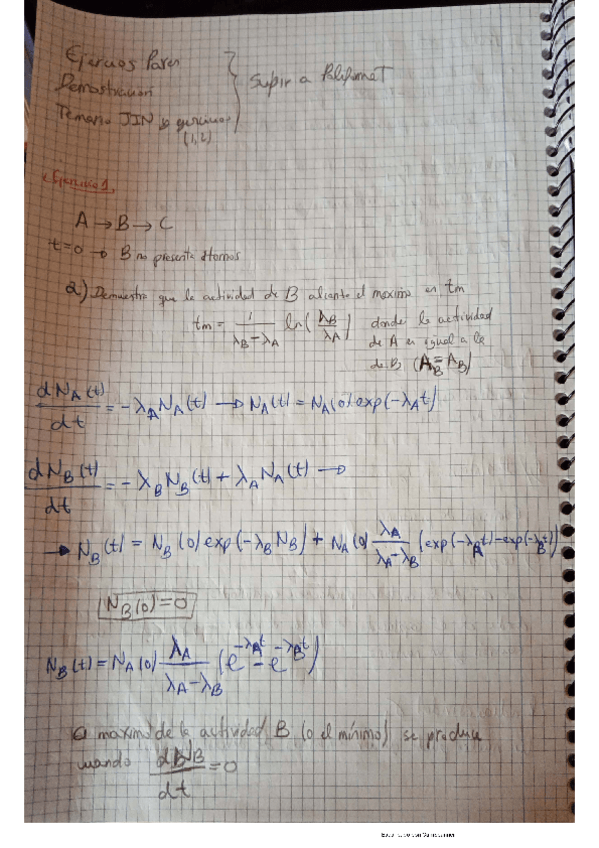 Ejercicios Pares
Demostración
Temario JIN y ejercicios
(1,2)
Subir a
Ejercicio 1,
A → B → C
t=0 → B no presenta átomos
a) Demuestra que la actividad de B alcanza el maximo en tm
tm = 1/(λB-λA) ln(λB/λA) donde la actividad
de A es igual a la
de B (
dNA(t)/dt = -λA NA(t) → NA(t) = NA(0) exp(-λAt)
dNB(t)/dt = -λB NB(t) + λA NA(t) →
→ NB(t) = NB(0) exp(-λB NB) + NA(0) λA/(λA-λB) (exp(-λAt)-exp(-λBt))
NB(0)=0
NB(t) = NA(0) λA/(λA-λB) (e^-λAt - e^-λBt)
El maximo de la actividad B (o el mínimo) se produce
cuando dNB/dt = 0